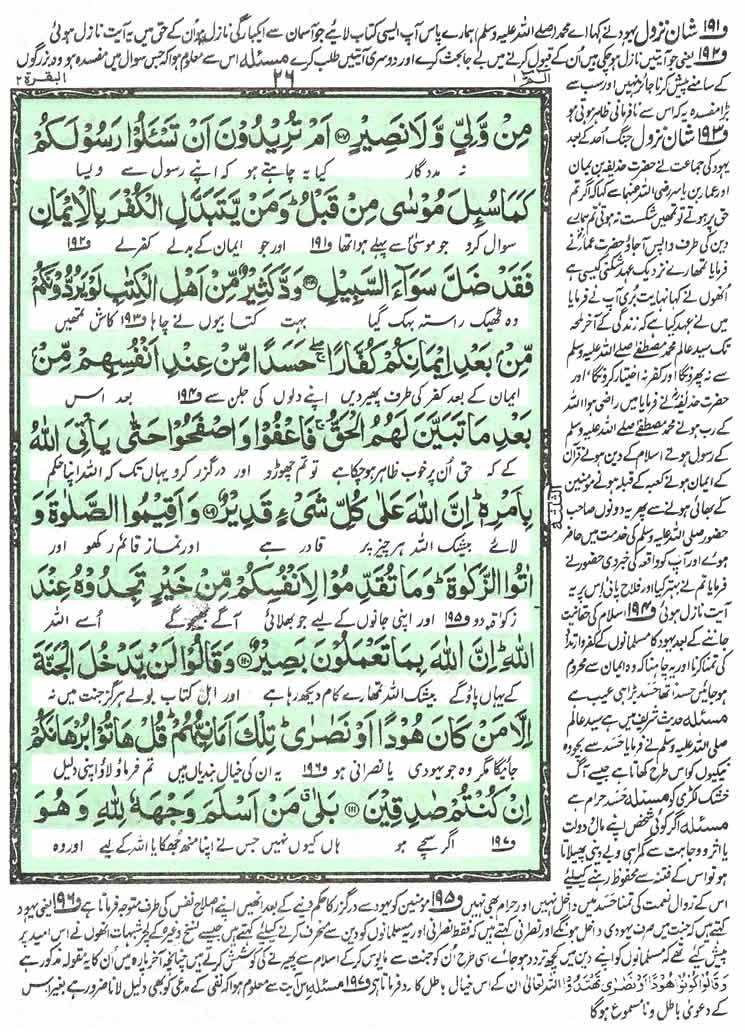 و۱۹۱ شان نزول یہود نے کہا اے محمد (صلے اللہ علیہ وسلم) ہمارے پاس آپ ایسی کتاب لائیے جو آسمان سے ایکبارگی نازل ہو ان کے حق میں یہ آیت نازل ہوئی
و۱۹۲ یعنی جو آیتیں نازل ہو چکی ہیں اُن کے قبول کرنے میں بے جا بحث کرے اور دوسری آیتیں طلب کرے مسئلہ اس سے معلوم ہوا کہ جس سوال میں مفسدہ ہو وہ بزرگوں
البقرة ۲
۲۶
الٓمّٓ ۱
کے سامنے پیش کرنا جائز نہیں اور سب سے
بڑا مفسدہ یہ کہ اس سے نافرمانی ظاہر ہوتی ہو
و۱۹۳ شان نزول جنگ اُحد کے بعد
یہود کی جماعت نے حضرت حذیفہ بن یمان
اور عمار بن یاسر رضی اللہ عنہما سے کہا کہ اگر تم
حق پر ہوتے تو تمھیں شکست نہ ہوتی تم ہمارے
دین کی طرف واپس آجاؤ حضرت عمار نے
فرمایا تمھارے نزدیک عہد شکنی کیسی ہے
انھوں نے کہا نہایت بُری آپ نے فرمایا
میں نے عہد کیا ہے کہ زندگی کے آخر لمحہ
تک سید عالم محمد مصطفےٰ صلے اللہ علیہ وسلم
سے نہ پھروں گا اور کفر نہ اختیار کرونگا اور
حضرت حذیفہ نے فرمایا میں راضی ہوا اللہ
کے رب ہونے محمد مصطفےٰ صلے اللہ علیہ وسلم
کے رسول ہونے اسلام کے دین ہونے قرآن
کے ایمان ہونے کعبہ کے قبلہ ہونے مؤمنین
کے بھائی ہونے سے پھر یہ دونوں صاحب
حضور صلی اللہ علیہ وسلم کی خدمت میں حاضر
ہوئے اور آپ کو واقعہ کی خبر دی حضور نے
فرمایا تم نے بہتر کیا اور فلاح پائی اس پر یہ
آیت نازل ہوئی و۱۹۴ اسلام کی حقانیت
جاننے کے بعد یہود کا مسلمانوں کے کفر و ارتداد
کی تمنا کرنا اور یہ چاہنا کہ وہ ایمان سے محروم
ہو جائیں حسداً تھا حسد بڑا ہی عیب ہے
مسئلہ حدیث شریف میں ہے سید عالم
صلی اللہ علیہ وسلم نے فرمایا حسد سے بچو وہ
نیکیوں کو اس طرح کھاتا ہے جیسے آگ
خشک لکڑی کو مسئلہ حسد حرام ہے
مسئلہ اگر کوئی شخص اپنے مال و دولت
یا اثر و وجاہت سے گمراہی و بے دینی پھیلاتا
ہو تو اس کے فتنہ سے محفوظ رہنے کیلئے
مِنْ وَّلِيٍّ وَّلَا نَصِيْرٍ ۱۰۷ اَمْ تُرِيْدُوْنَ اَنْ تَسْـَٔلُوْا رَسُوْلَكُمْ
نہ مددگار کیا یہ چاہتے ہو کہ اپنے رسول سے ویسا
كَمَا سُىِٕلَ مُوْسٰى مِنْ قَبْلُ ؕ وَمَنْ يَّتَبَدَّلِ الْكُفْرَ بِالْاِيْمَانِ
سوال کرو جو موسیٰ سے پہلے ہوا تھا و۱۹۱ اور جو ایمان کے بدلے کفر لے و۱۹۲
فَقَدْ ضَلَّ سَوَآءَ السَّبِيْلِ ۱۰۸ وَدَّ كَثِيْرٌ مِّنْ اَهْلِ الْكِتٰبِ لَوْ يَرُدُّوْنَكُمْ
وہ ٹھیک راستہ بہک گیا بہت کتابیوں نے چاہا و۱۹۳ کاش تمھیں
مِّنْۢ بَعْدِ اِيْمَانِكُمْ كُفَّارًا ۚ حَسَدًا مِّنْ عِنْدِ اَنْفُسِهِمْ مِّنْۢ
ایمان کے بعد کفر کی طرف پھیر دیں اپنے دلوں کی جلن سے و۱۹۴ بعد اس
بَعْدِ مَا تَبَيَّنَ لَهُمُ الْحَقُّ ۚ فَاعْفُوْا وَاصْفَحُوْا حَتّٰى يَاْتِيَ اللّٰهُ
کے کہ حق اُن پر خوب ظاہر ہو چکا ہے تو تم چھوڑو اور درگزر کرو یہاں تک کہ اللہ اپنا حکم
بِاَمْرِهٖ ؕ اِنَّ اللّٰهَ عَلٰى كُلِّ شَيْءٍ قَدِيْرٌ ۱۰۹ وَاَقِيْمُوا الصَّلٰوةَ وَ
لائے بیشک اللہ ہر چیز پر قادر ہے اور نماز قائم رکھو اور
اٰتُوا الزَّكٰوةَ ؕ وَمَا تُقَدِّمُوْا لِاَنْفُسِكُمْ مِّنْ خَيْرٍ تَجِدُوْهُ عِنْدَ
زکوٰۃ دو و۱۹۵ اور اپنی جانوں کے لیے جو بھلائی آگے بھیجو گے اُسے اللہ
اللّٰهِ ؕ اِنَّ اللّٰهَ بِمَا تَعْمَلُوْنَ بَصِيْرٌ ۱۱۰ وَقَالُوْا لَنْ يَّدْخُلَ الْجَنَّةَ
کے یہاں پاؤ گے بیشک اللہ تمھارے کام دیکھ رہا ہے اور اہل کتاب بولے ہرگز جنت میں نہ
اِلَّا مَنْ كَانَ هُوْدًا اَوْ نَصٰرٰى ؕ تِلْكَ اَمَانِيُّهُمْ ؕ قُلْ هَاتُوْا بُرْهَانَكُمْ
جائیگا مگر وہ جو یہودی یا نصرانی ہو و۱۹۶ یہ ان کی خیال بندیاں ہیں تم فرماؤ لاؤ اپنی دلیل
اِنْ كُنْتُمْ صٰدِقِيْنَ ۱۱۱ بَلٰى ۗ مَنْ اَسْلَمَ وَجْهَهٗ لِلّٰهِ وَهُوَ
و۱۹۷ اگر سچے ہو ہاں کیوں نہیں جس نے اپنا منھ جھکایا اللہ کے لیے اور وہ
اس کے زوال نعمت کی تمنا حسد میں داخل نہیں اور حرام بھی نہیں و۱۹۵ مؤمنین کو یہود سے درگزر کا حکم دینے کے بعد انھیں اپنے اصلاح نفس کی طرف متوجہ فرماتا ہے و۱۹۶ یعنی یہود
کہتے ہیں کہ جنت میں صرف یہودی داخل ہونگے اور نصرانی کہتے ہیں کہ فقط نصرانی اور یہ مسلمانوں کو دین سے منحرف کرنے کیلئے کہتے ہیں جیسے نسخ وغیرہ کے لچر شبہات انھوں نے اس امید پر
پیش کئے تھے کہ مسلمانوں کو اپنے دین میں کچھ تردد ہو جائے اسی طرح اُن کو جنت سے مایوس کرکے اسلام سے پھیرنے کی کوشش کرتے ہیں چنانچہ آخر پارہ میں اُن کا یہ مقولہ مذکور ہے
وَقَالُوْا كُوْنُوْا هُوْدًا اَوْ نَصٰرٰى تَهْتَدُوْا اللہ تعالیٰ ان کے اس خیال باطل کا رد فرماتا ہے و۱۹۷ مسئلہ اس آیت سے معلوم ہوا کہ نفی کے مدعی کو بھی دلیل لانا ضرور ہے بغیر اس
کے دعویٰ باطل و نامسموع ہوگا